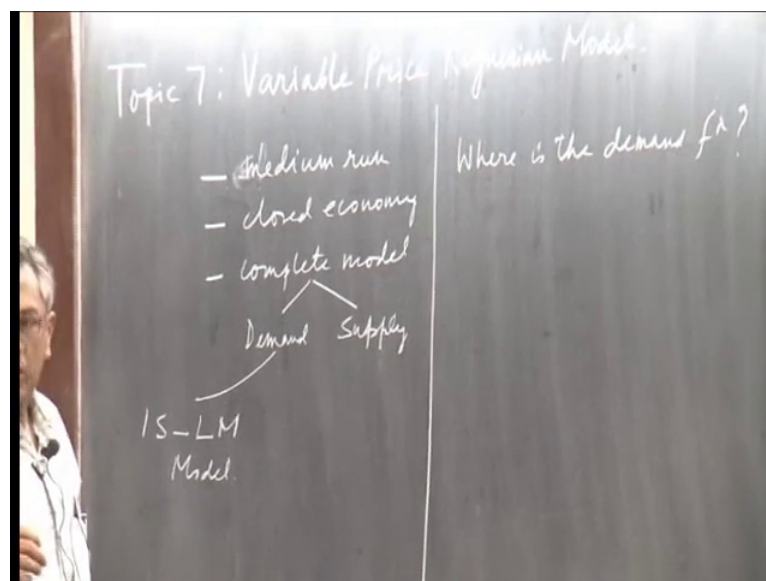 Topic 7: Variable Price Keynesian Model.
- medium run
- closed economy
- complete model
Demand Supply
IS-LM
Model.
Where is the demand fⁿ?